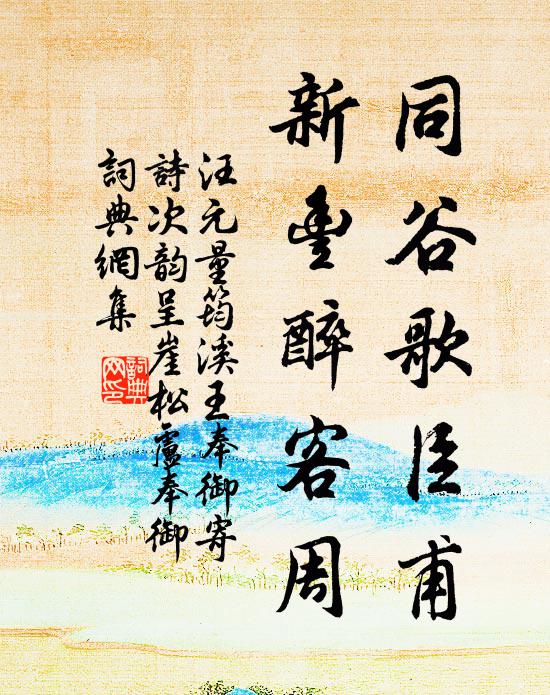 同谷歌臣甫
新豐醉客周
汪元量筠溪王奉御寄
詩次韵呈崖松盧奉御
詞典網集